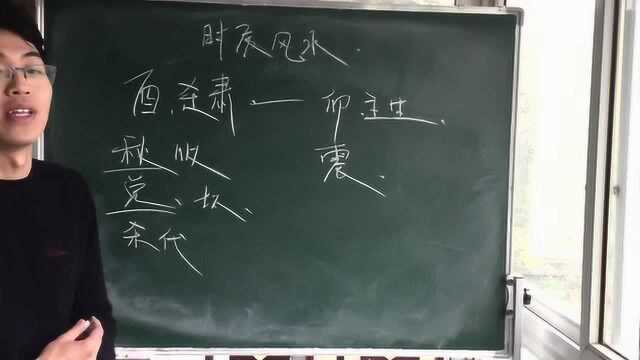 时辰风水.
酉.杀肃.— 卯主生.
秋收 震.
兑、坏、
杀伐